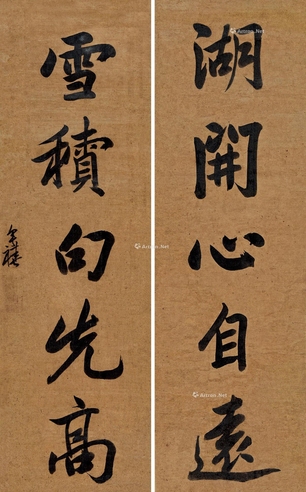 湖開心自遠
雪積句先高
Artron.Net
Artron.Net
Artron.Net